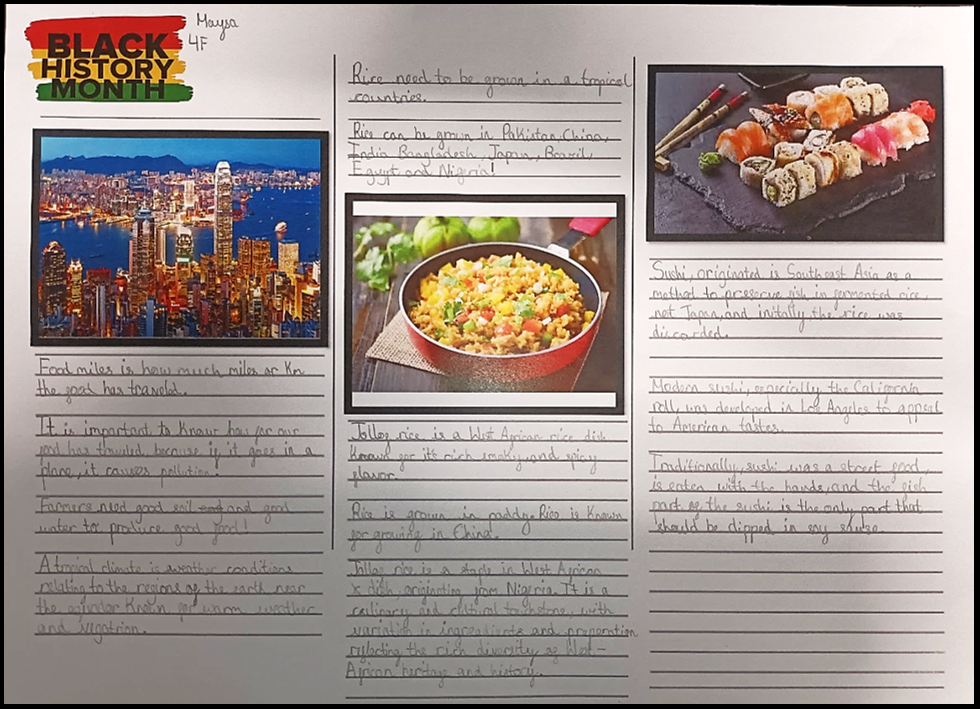 BLACK
HISTORY
MONTH
Maysa
4F
Food miles is how much miles or Km
the food has traveld.
It is important to Know how far our
food has travled, because if it goes in a
plane, it causes pollution!
Farmers need good soil and good
water to produce good food!
A tropical climate is weather conditions
relating to the regions of the earth near
the Known for warm weather
and
Rice need to be grown in a tropical
countries.
Rice can be grown in Pakistan, China,
India Bangladesh, Japan, Brazil,
Egypt and Nigeria!
Jollof rice is a West African rice dish
Known for its rich smoky, and spicy
flavor.
Rice is grown in paddy. Rice is Known
for growing in China.
Jollof rice is a staple in West African
dish, originating from Nigeria. It is a
culinary and cultural touchstone, with
variation in ingredients and preparation
reflecting the rich diversity of West-
African heritage and history.
Sushi, originated is Southeast Asia as a
method to preserve fish in fermented rice,
not Japan, and initally the rice was
discarded.
Modern sushi, especially the California
roll, was developed in Los Angeles to appeal
to American tastes.
Traditionally, sushi was a street food,
is eaten with the hands, and the fish
part of the sushi is the only part that
should be dipped in soy